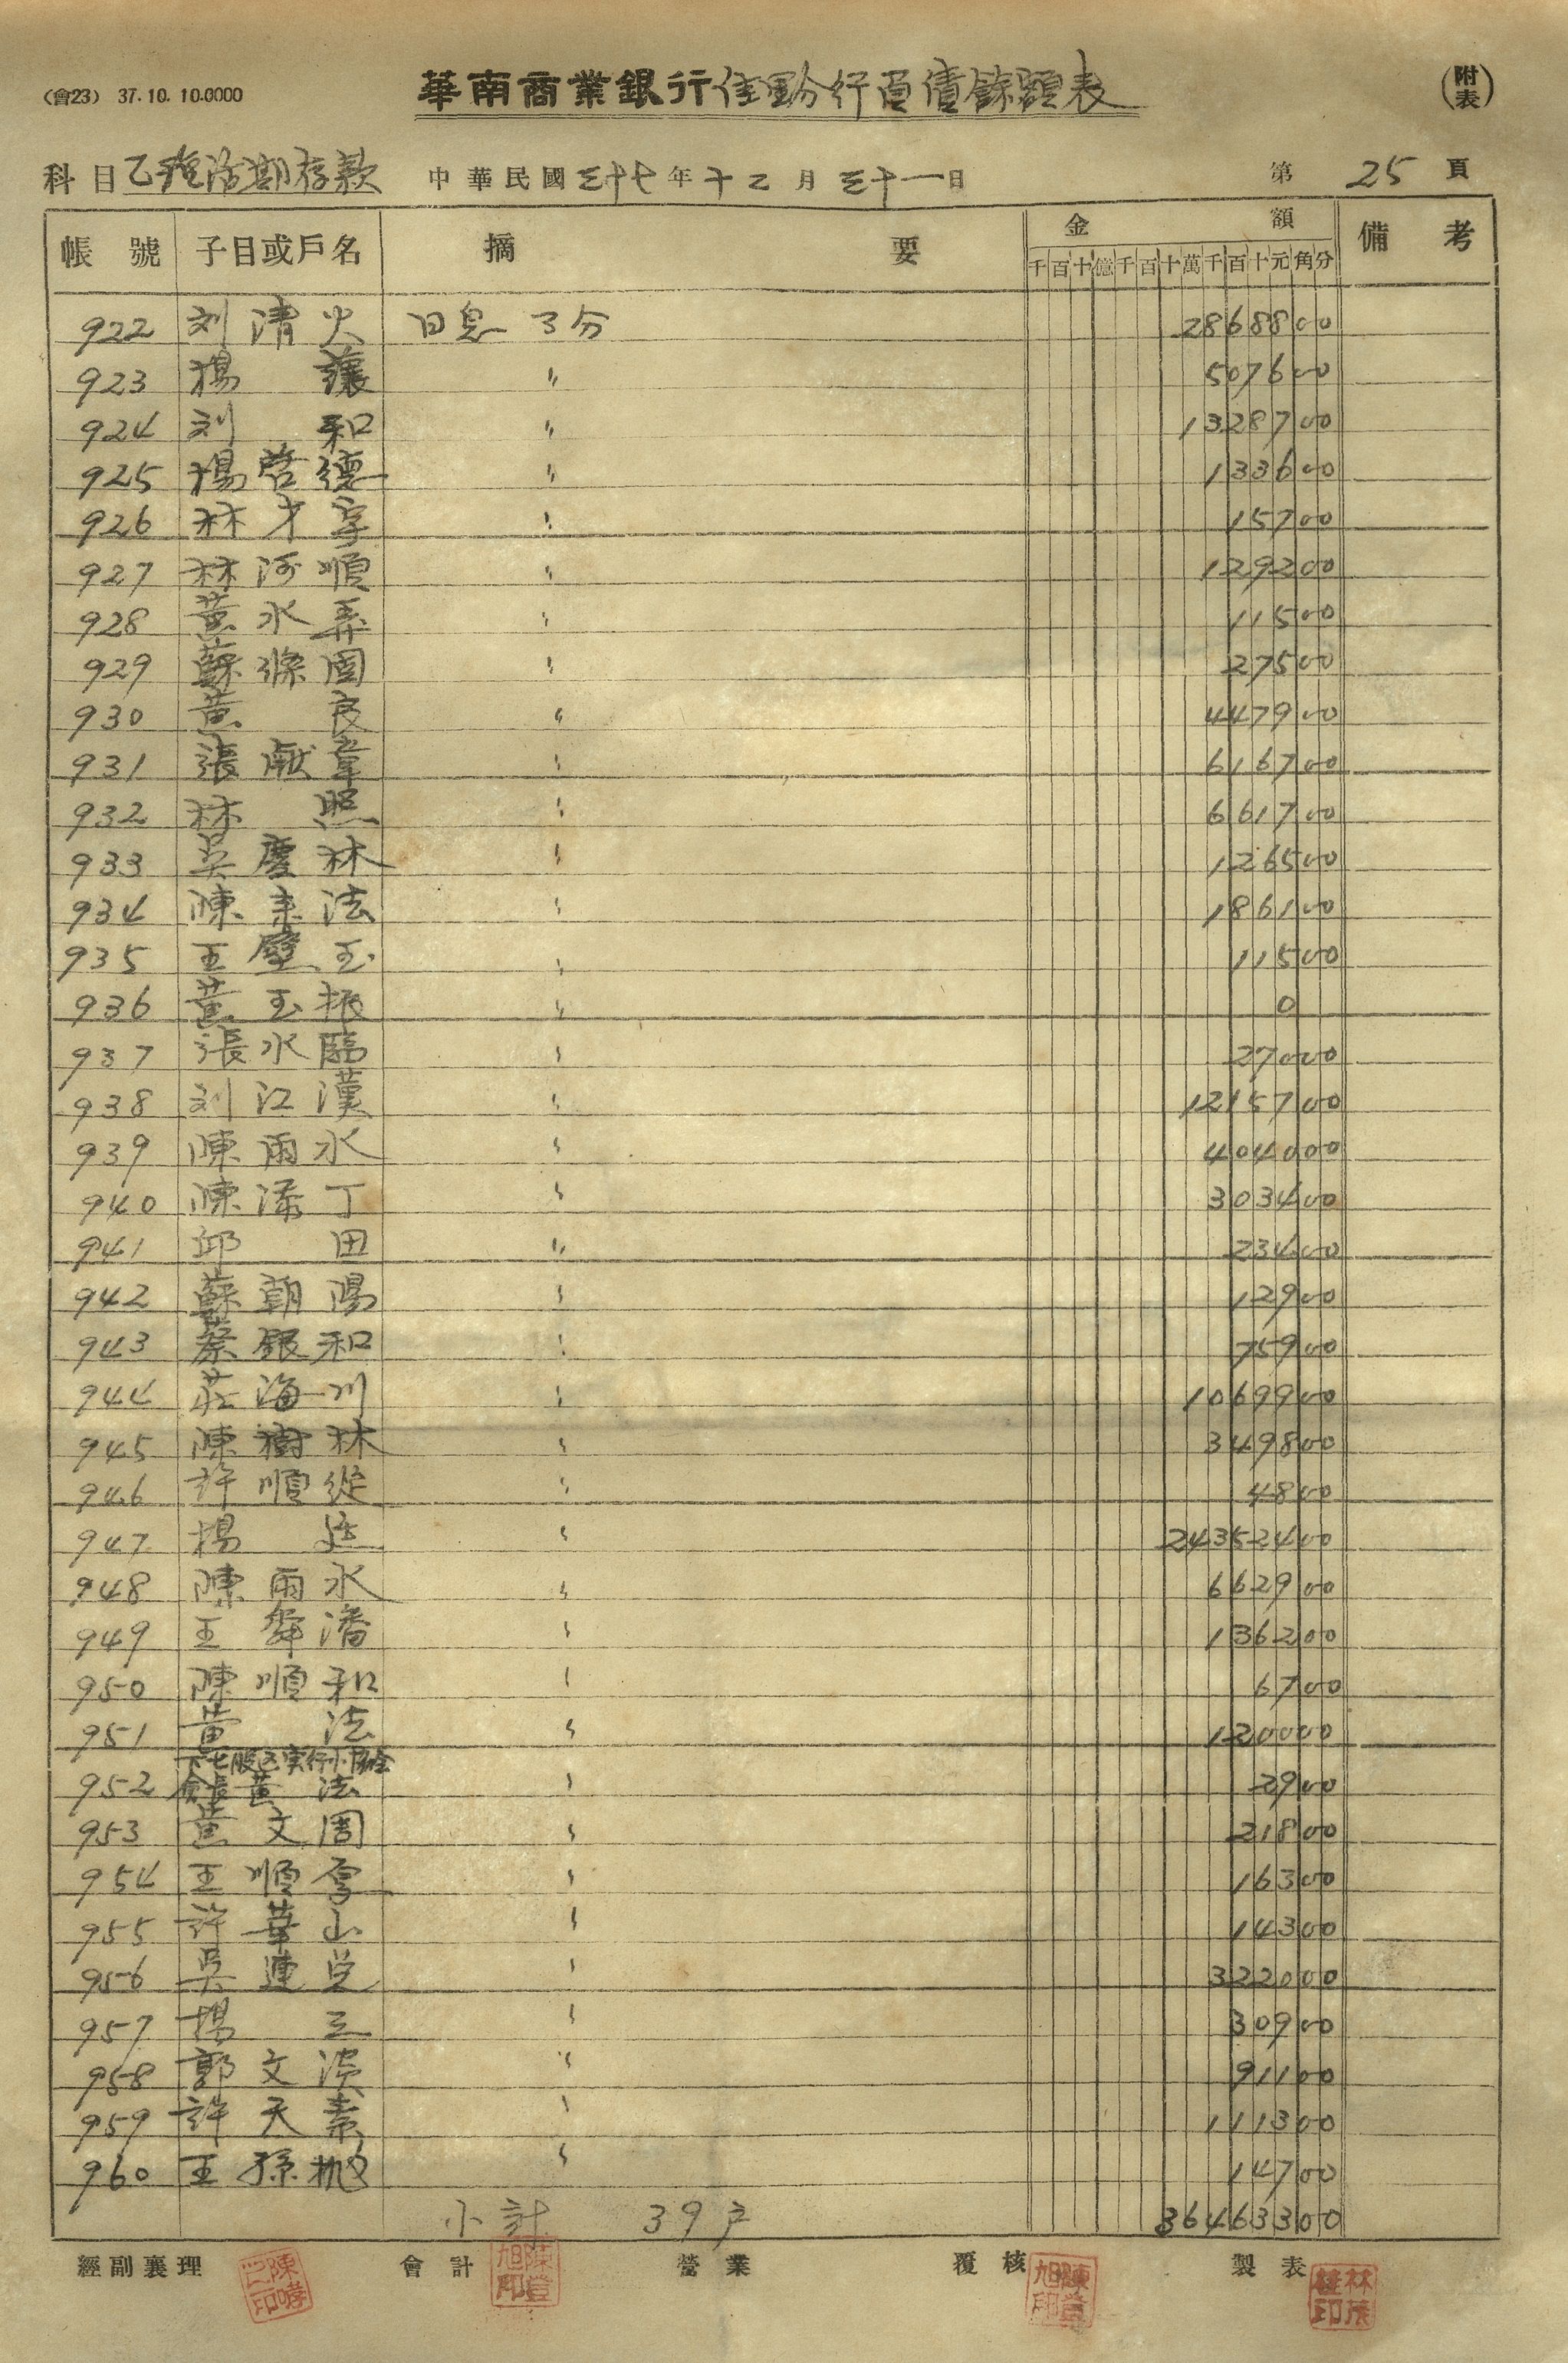 (會23) 37.10.10.0000
華南商業銀行佳里分行負債餘額表
(附表)
科目 乙種活期存款 中華民國三十七年十二月三十一日 第 25 頁
帳號 子目或戶名 摘要 金額 備考
千百十億千百十萬千百十元角分
922 刘清火 日息 3分 2868800
923 楊 讓 〃 507600
924 刘 和 〃 1328700
925 楊啓德 〃 133600
926 林才 〃 15700
927 林河順 〃 129200
928 黃水弄 〃 11500
929 蘇 固 〃 27500
930 黃 良 〃 447900
931 張献章 〃 616700
932 林 照 〃 661700
933 吳慶林 〃 126500
934 陳来法 〃 186100
935 王壁玉 〃 11500
936 黃玉振 〃 0
937 張水臨 〃 27000
938 刘江漢 〃 1215700
939 陳雨水 〃 404000
940 陳添丁 〃 303400
941 邱 田 〃 23400
942 蘇朝陽 〃 12900
943 蔡銀和 〃 75900
944 莊海川 〃 1069900
945 陳樹林 〃 349800
946 許順從 〃 4800
947 楊 〃 24352400
948 陳雨水 〃 662900
949 王舜潘 〃 136200
950 陳順和 〃 6700
951 黃 法 〃 120000
下七股区実行小組合
952 會長黃 法 〃 2900
953 黃文周 〃 21800
954 王順 〃 16300
955 許華山 〃 14300
956 吳連 〃 322000
957 楊 三 〃 30900
958 郭文濱 〃 91100
959 許天素 〃 111300
960 王孫 〃 14700
小計 39戶 36463300
經副襄理 會計 營業 覆核 製表
陳登旭印
陳登旭印